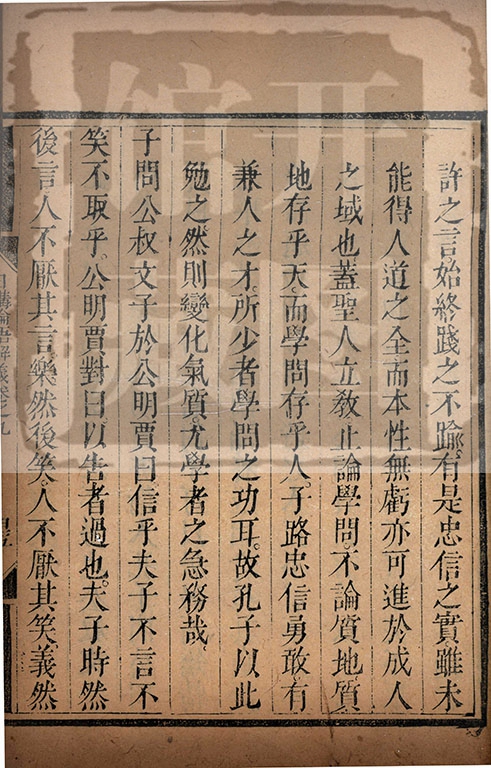 許之言始終踐之不踰有是忠信之實雖未
能得人道之全而本性無虧亦可進於成人
之域也蓋聖人立敎止論學問不論質地質
地存乎天而學問存乎人子路忠信勇敢有
兼人之才所少者學問之功耳故孔子以此
勉之然則變化氣質尤學者之急務哉
子問公叔文子於公明賈曰信乎夫子不言不
笑不取乎公明賈對曰以告者過也夫子時然
後言人不厭其言樂然後笑人不厭其笑義然
日講論語解義卷之九